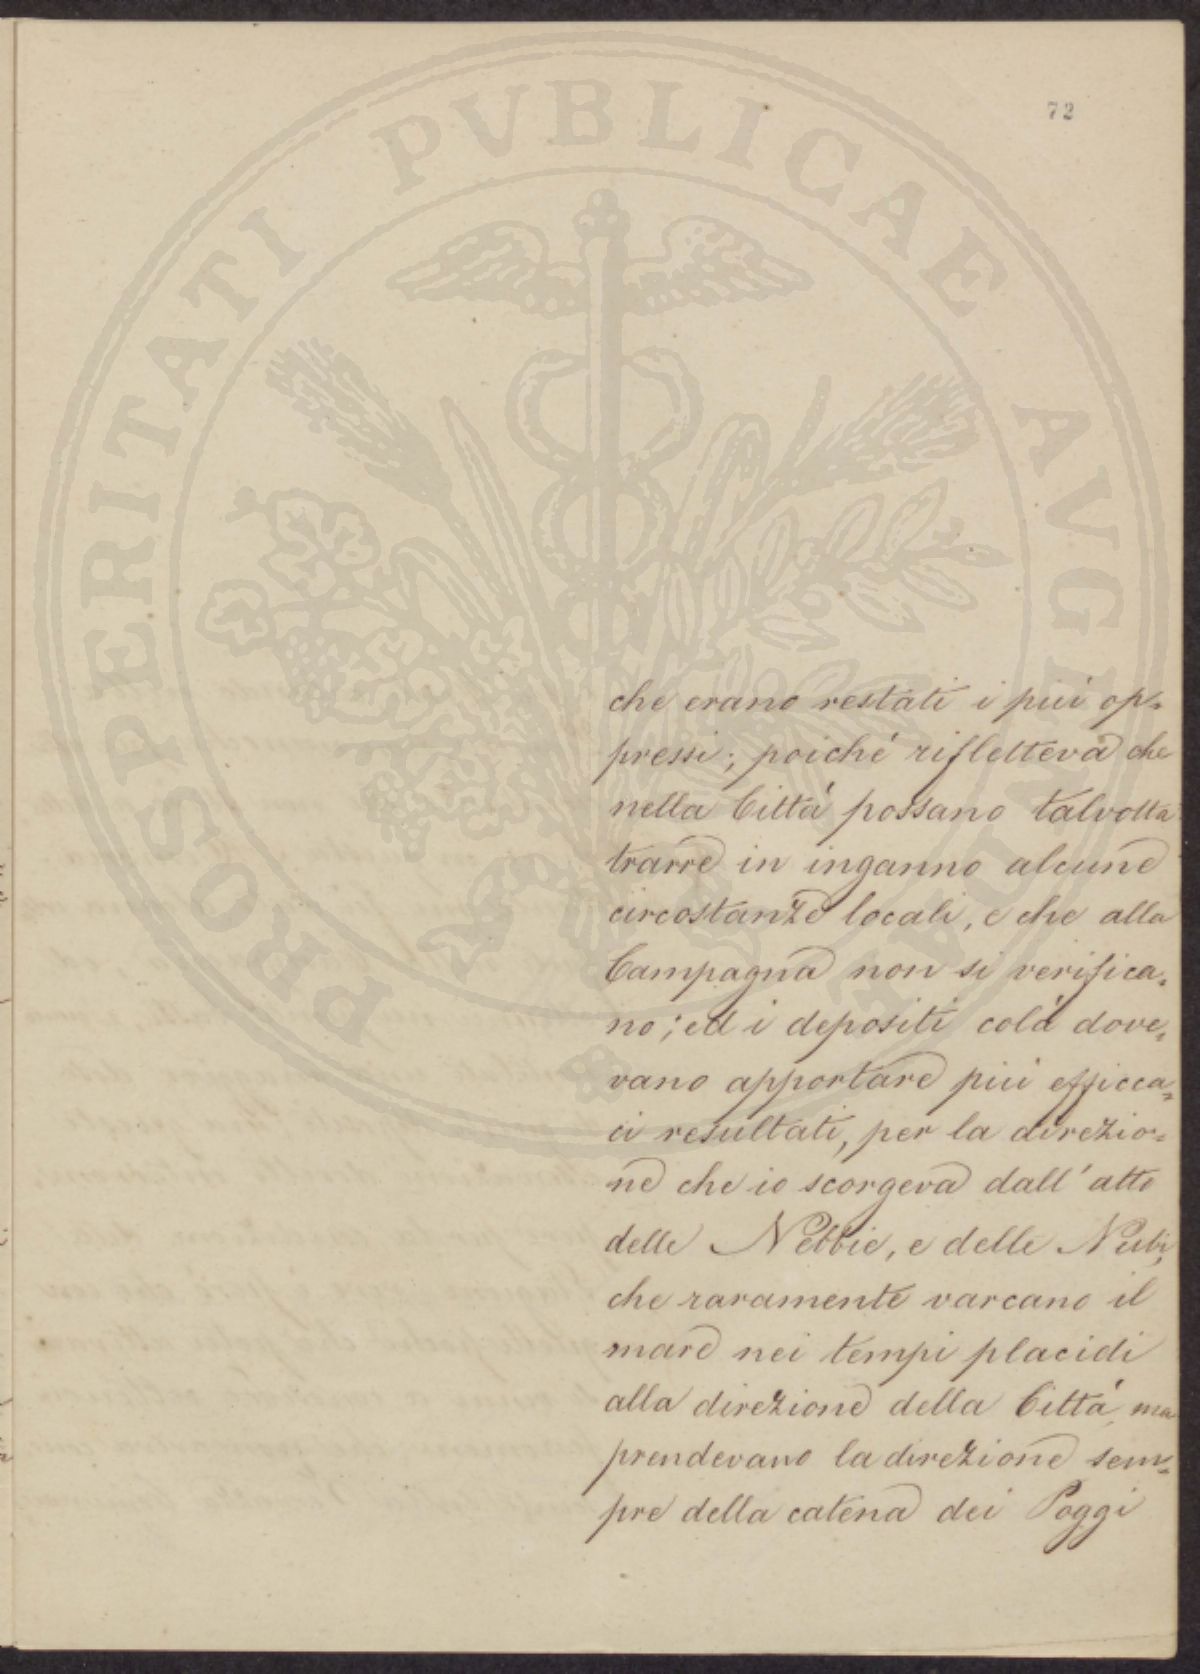 72
PROSPERITATI PVBLICAE AVGENDAE
che erano restati i piú op=
pressi; poiché rifletteva che
nella Cittá possano talvolta
trarre in inganno alcune
circostanze locali, e che alla
Campagna non si verifica=
no; ed i depositi colá dove=
vano apportare piú efficca=
ci resultati, per la direzio=
ne che io scorgeva dall' alto
delle Nebbie, e delle Nubi,
che raramente varcano il
mare nei tempi placidi
alla direzione della Cittá, ma
prendevano la direzione sem=
pre della catena dei Poggi